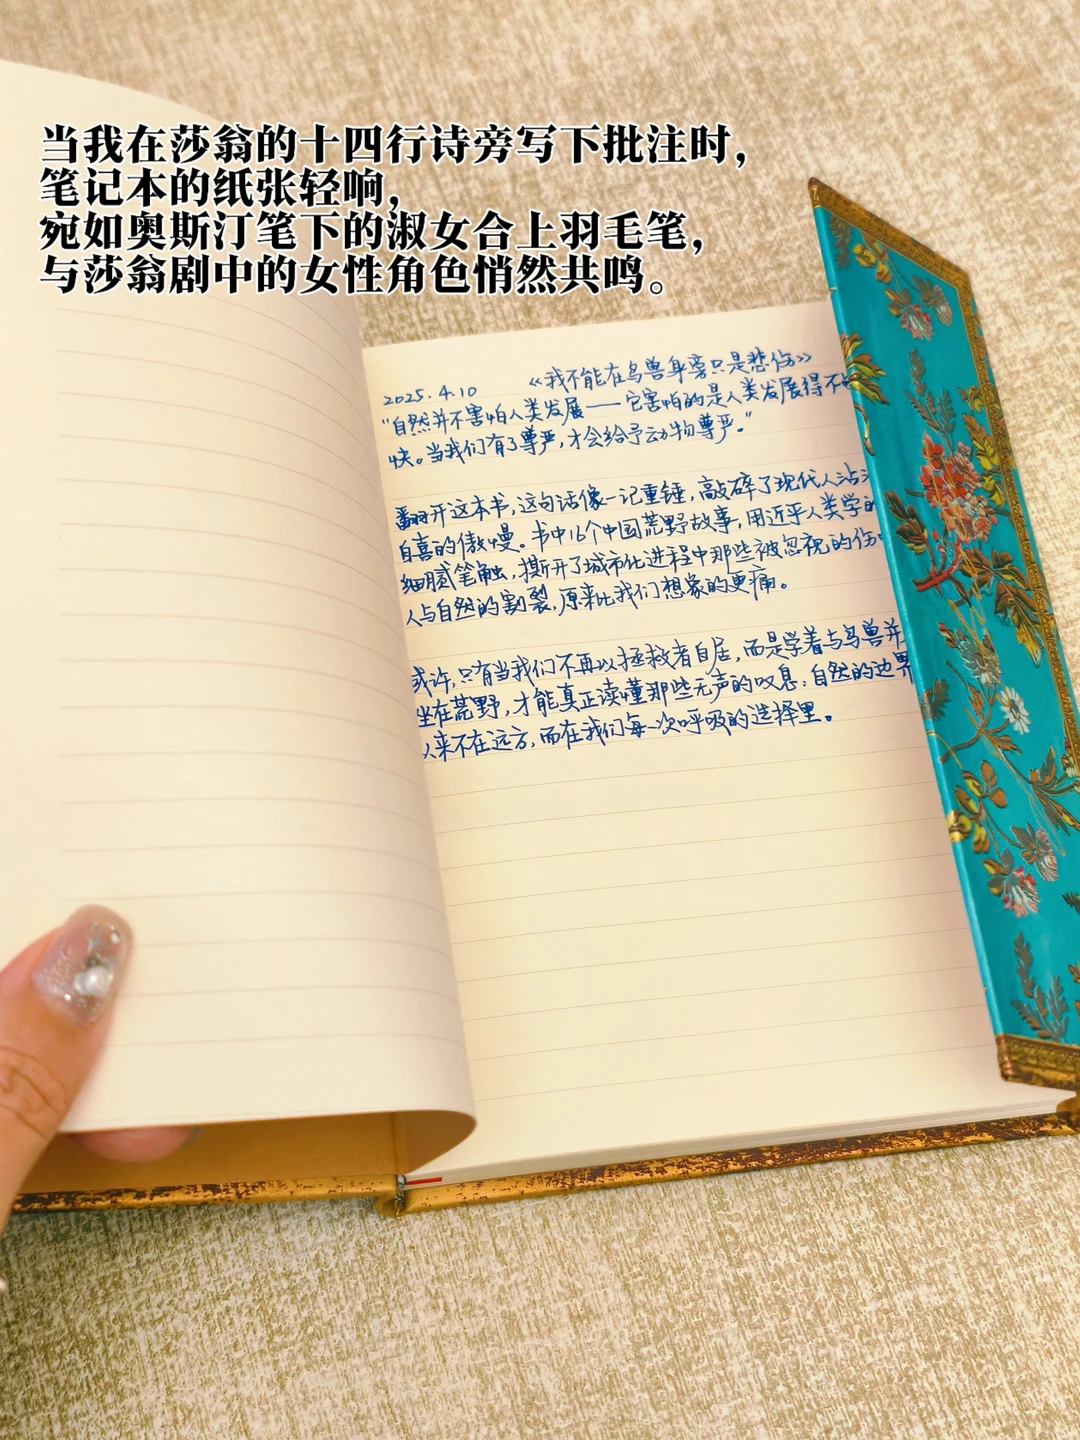 当我在莎翁的十四行诗旁写下批注时，
笔记本的纸张轻响，
宛如奥斯汀笔下的淑女合上羽毛笔，
与莎翁剧中的女性角色悄然共鸣。
2025.4.10 《我不能在鸟兽身旁只是悲伤》
"自然并不害怕人类发展——它害怕的是人类发展得不
快。当我们有了尊严，才会给予动物尊严。"
翻开这本书，这句话像一记重锤，敲碎了现代人沾沾
自喜的傲慢。书中16个中国荒野故事，用近乎人类学的
细腻笔触，撕开了城市化进程中那些被忽视的伤
人与自然的割裂，原来比我们想象的更痛。
或许，只有当我们不再以拯救者自居，而是学着与鸟兽并
坐在荒野，才能真正读懂那些无声的叹息：自然的边界
从来不在远方，而在我们每一次呼吸的选择里。